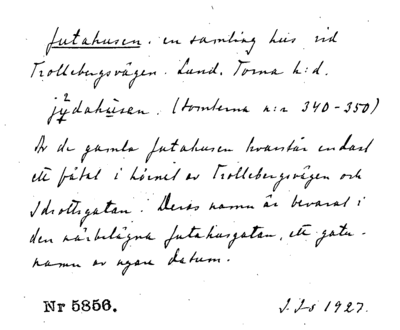 Jutahusen. en samling hus vid
Trollebergsvägen. Lund. Torna h:d.
jýdahùsen. (tomterna n:r 340-350)
Av de gamla Jutahusen kvarstår endast
ett fåtal i hörnet av Trollebergsvägen och
Idrottsgatan. Deras namn är bevarat i
den närbelägna Jutahusgatan, ett gatu-
namn av yngre datum.
Nr 5856.
1927.